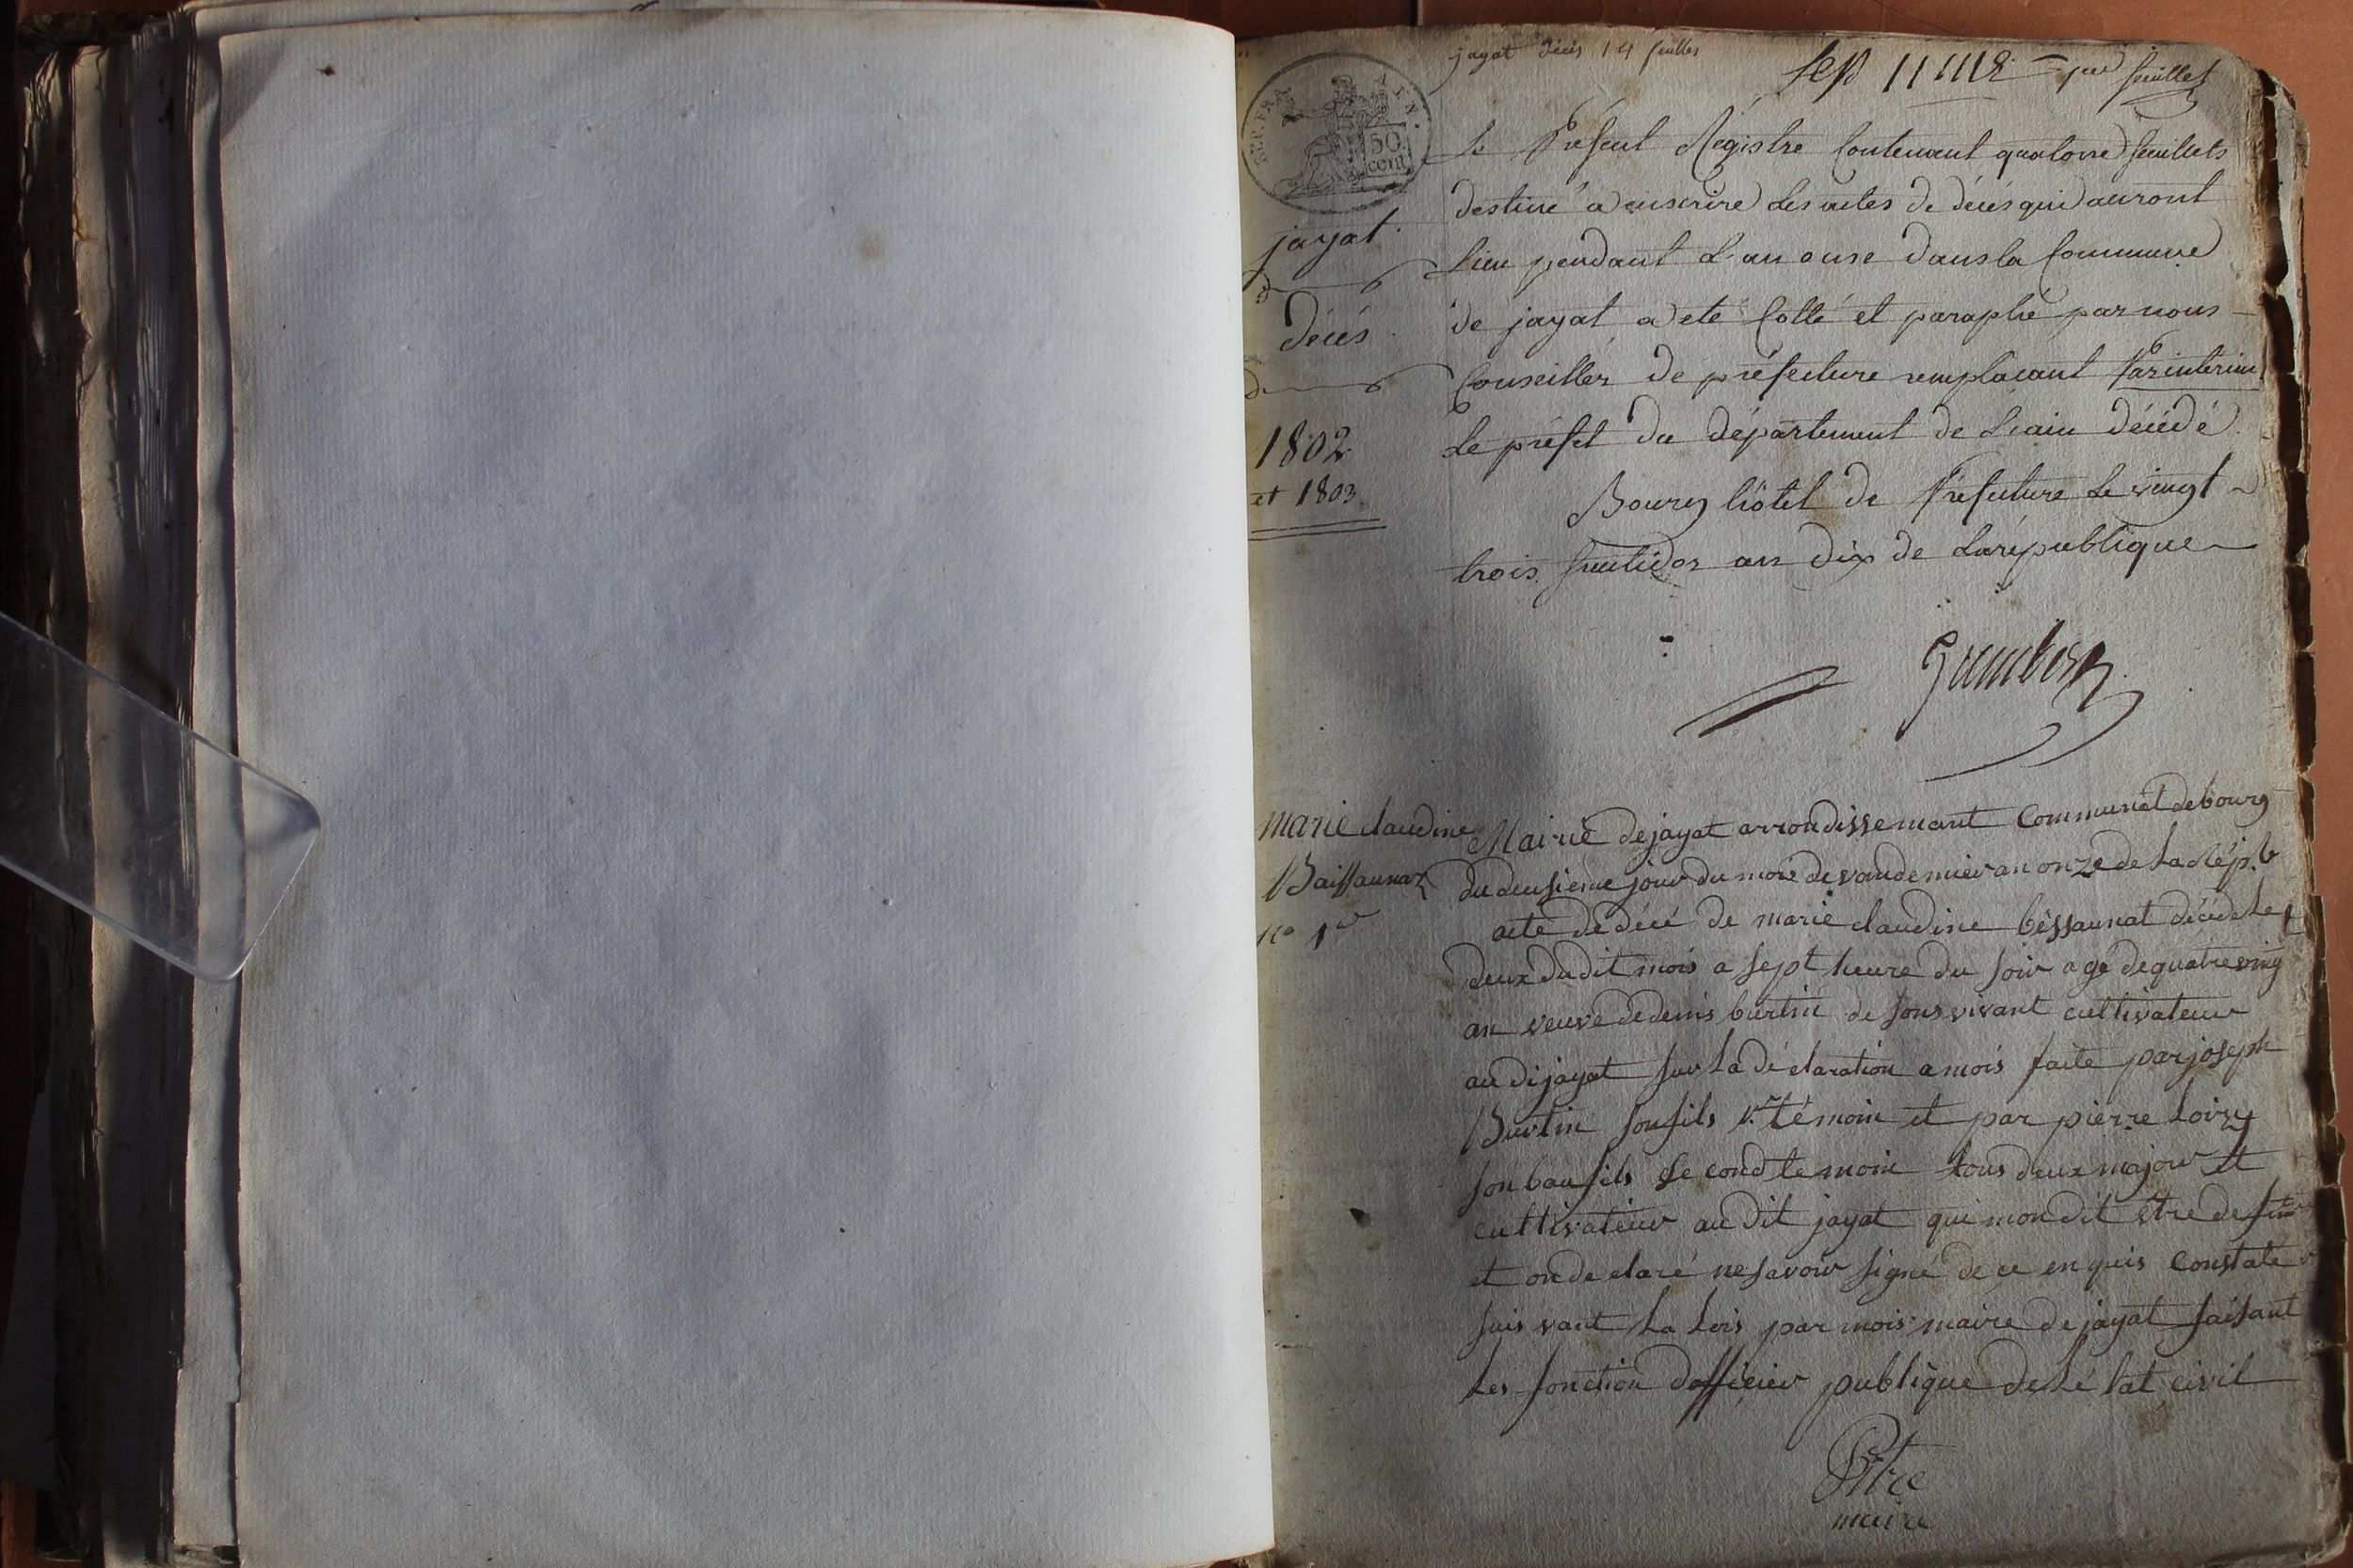 jayat décès 14 feuilles
1er feuillet
REP. FRA
AIN.
50 cent
Le Présent Régistre Contenant quatorze feuillets
destiné a inscrire Les actes de décès qui auront
Lieu pendant L'an onse dans la Commune
de jayat a eté Cotté et paraphé par nous
Conseiller de préfecture remplacant Par interim
Le préfet du département de L'ain décédé
Bourg hôtel de Préfecture Le vingt
trois fructidor an dix de La république
jayat
décés
1802
et 1803
marie claudine
Baissaunaz
no 1er
Mairie de jayat arrondissemant Communal de bourg
du deusieme jour du mois de vandemier an onze de La Rép.b
acte de décé de marie claudine béssaunat décéde Le
deux dudit mois a sept heure du soir age de quatre ving
an veuve de denis burtin de sons vivant cultivateur
au di jayat sur La déclaration a mois faite par joseph
Burtin son fils 1.r témoin et par pierre Loizy
son bau fils Second temoin tous deux majour et
cultivateur au dit jayat qui mon dit être de
et on declaré ne savoir signé de ce enquis Constate
suis vant La Lois par mois maire de jayat faisant
Les fonction dofficier publique de Lé tat civil
maire